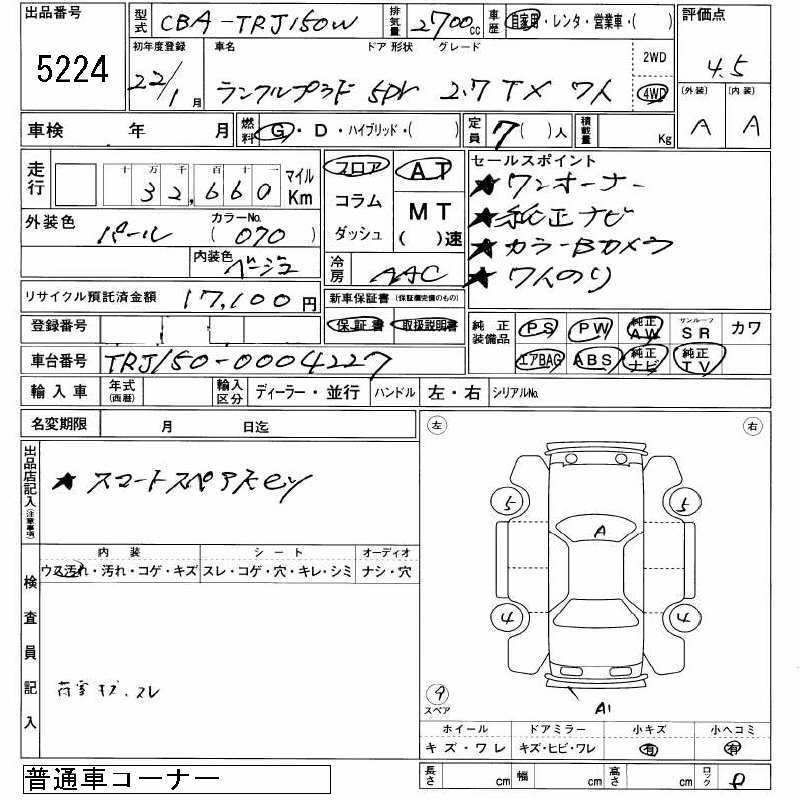 出品番号
5224
型式 CBA-TRJ150W
排気量 2700cc
車歴 自家用・レンタ・営業車・( )
評価点
4.5
初年度登録 22/1月
車名 ドア 形状 グレード
ランクルプラド 5DR 2.7 TX 7人
2WD
4WD
[外装] [内装]
A A
車検 年 月
燃料 G・D・ハイブリッド・( )
定員 7( )人
積載量 Kg
走行 十 万 千 百 十 一
32,660 マイル Km
フロア
コラム
ダッシュ
AT
MT
( )速
セールスポイント
★ワンオーナー
★純正ナビ
★カラーBカメラ
★7人のり
外装色 パール
カラーNo.
(070)
内装色 ベージュ
冷房 AAC
リサイクル預託済金額 17,100円
新車保証書(保証欄完備のもの)
保証書 取扱説明書
登録番号
純正装備品 PS PW 純正AW サンルーフSR カワ
エアBAG ABS 純正ナビ 純正TV
車台番号 TRJ150-0004227
輸入車 年式(西暦) 輸入区分 ディーラー・並行 ハンドル 左・右 シリアルNo.
名変期限 月 日迄
左 右
出品店記入(注意事項)
★スマートスペアキー
内装 シート オーディオ
ウス汚れ・汚れ・コゲ・キズ スレ・コゲ・穴・キレ・シミ ナシ・穴
検査員記入
荷室キズ、スレ
5 5
A
4 4
4
スペア
A1
ホイール ドアミラー 小キズ 小ヘコミ
キズ・ワレ キズ・ヒビ・ワレ 有 有
長さ cm 幅 cm 高さ cm ロック P
普通車コーナー